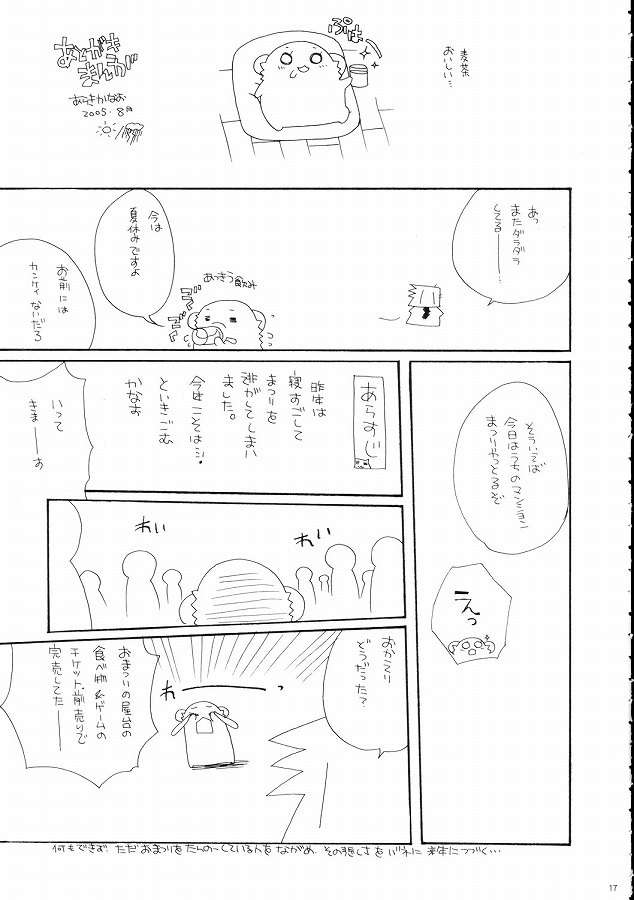 あとがき
まんが
あらきかなお
2005.8月
ぷは
麦茶
おいしい…
あっ
またダラダラ
してる――…
今は
夏休みですよ
あっきう飲み
お前には
カンケイないだろ
そういえば
今日はうちのマンション
まつりやっとるぞ
えっ
あらすじ
昨年は
寝すごして
まつりを
逃がしてしまい
ました。
今年こそは…!
といきごむ
かなお
いって
きま――す
わい
わい
おかえり
どうだった?
わ――っ
おまつりの屋台の
食べ物&ゲームの
チケット、前売りで
完売してた――
何もできず ただおまつりをたんの〜している人をながめ、その悲しさをバネに来年につづく…
17